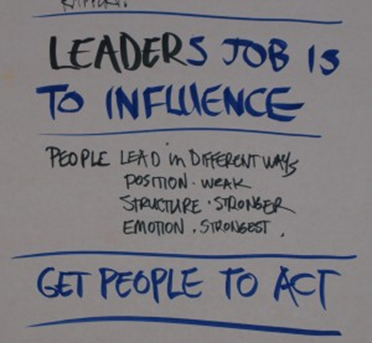 LEADERS JOB IS
TO INFLUENCE
PEOPLE LEAD in DIFFERENT WAYS
POSITION · WEAK
STRUCTURE · STRONGER
EMOTION . STRONGEST .
GET PEOPLE TO ACT